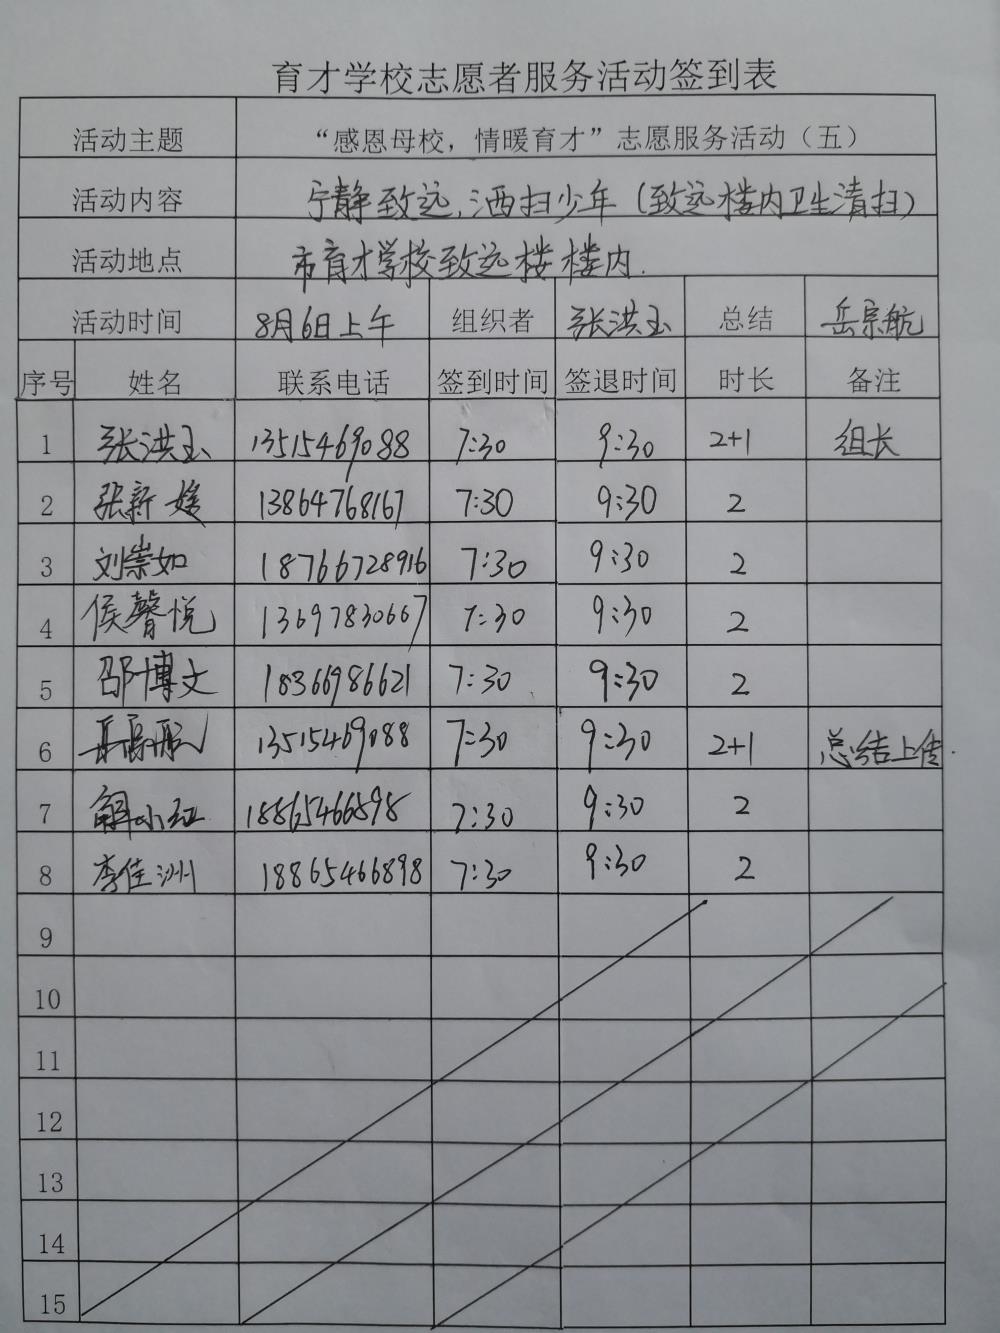 育才学校志愿者服务活动签到表
活动主题 “感恩母校，情暖育才”志愿服务活动（五）
活动内容 宁静致远，洒扫少年（致远楼内卫生清扫）
活动地点 市育才学校致远楼楼内.
活动时间 8月6日上午 组织者 张洪玉 总结 岳宗航
序号 姓名 联系电话 签到时间 签退时间 时长 备注
1 张洪玉 13515469088 7:30 9:30 2+1 组长
2 张新媛 13864768167 7:30 9:30 2
3 刘崇如 18766728916 7:30 9:30 2
4 侯馨悦 13697830667 7:30 9:30 2
5 邵博文 18366986621 7:30 9:30 2
6 岳宗航 13515469088 7:30 9:30 2+1 总结上传.
7 解小红 18865466898 7:30 9:30 2
8 李佳洲 18865466898 7:30 9:30 2
9
10
11
12
13
14
15